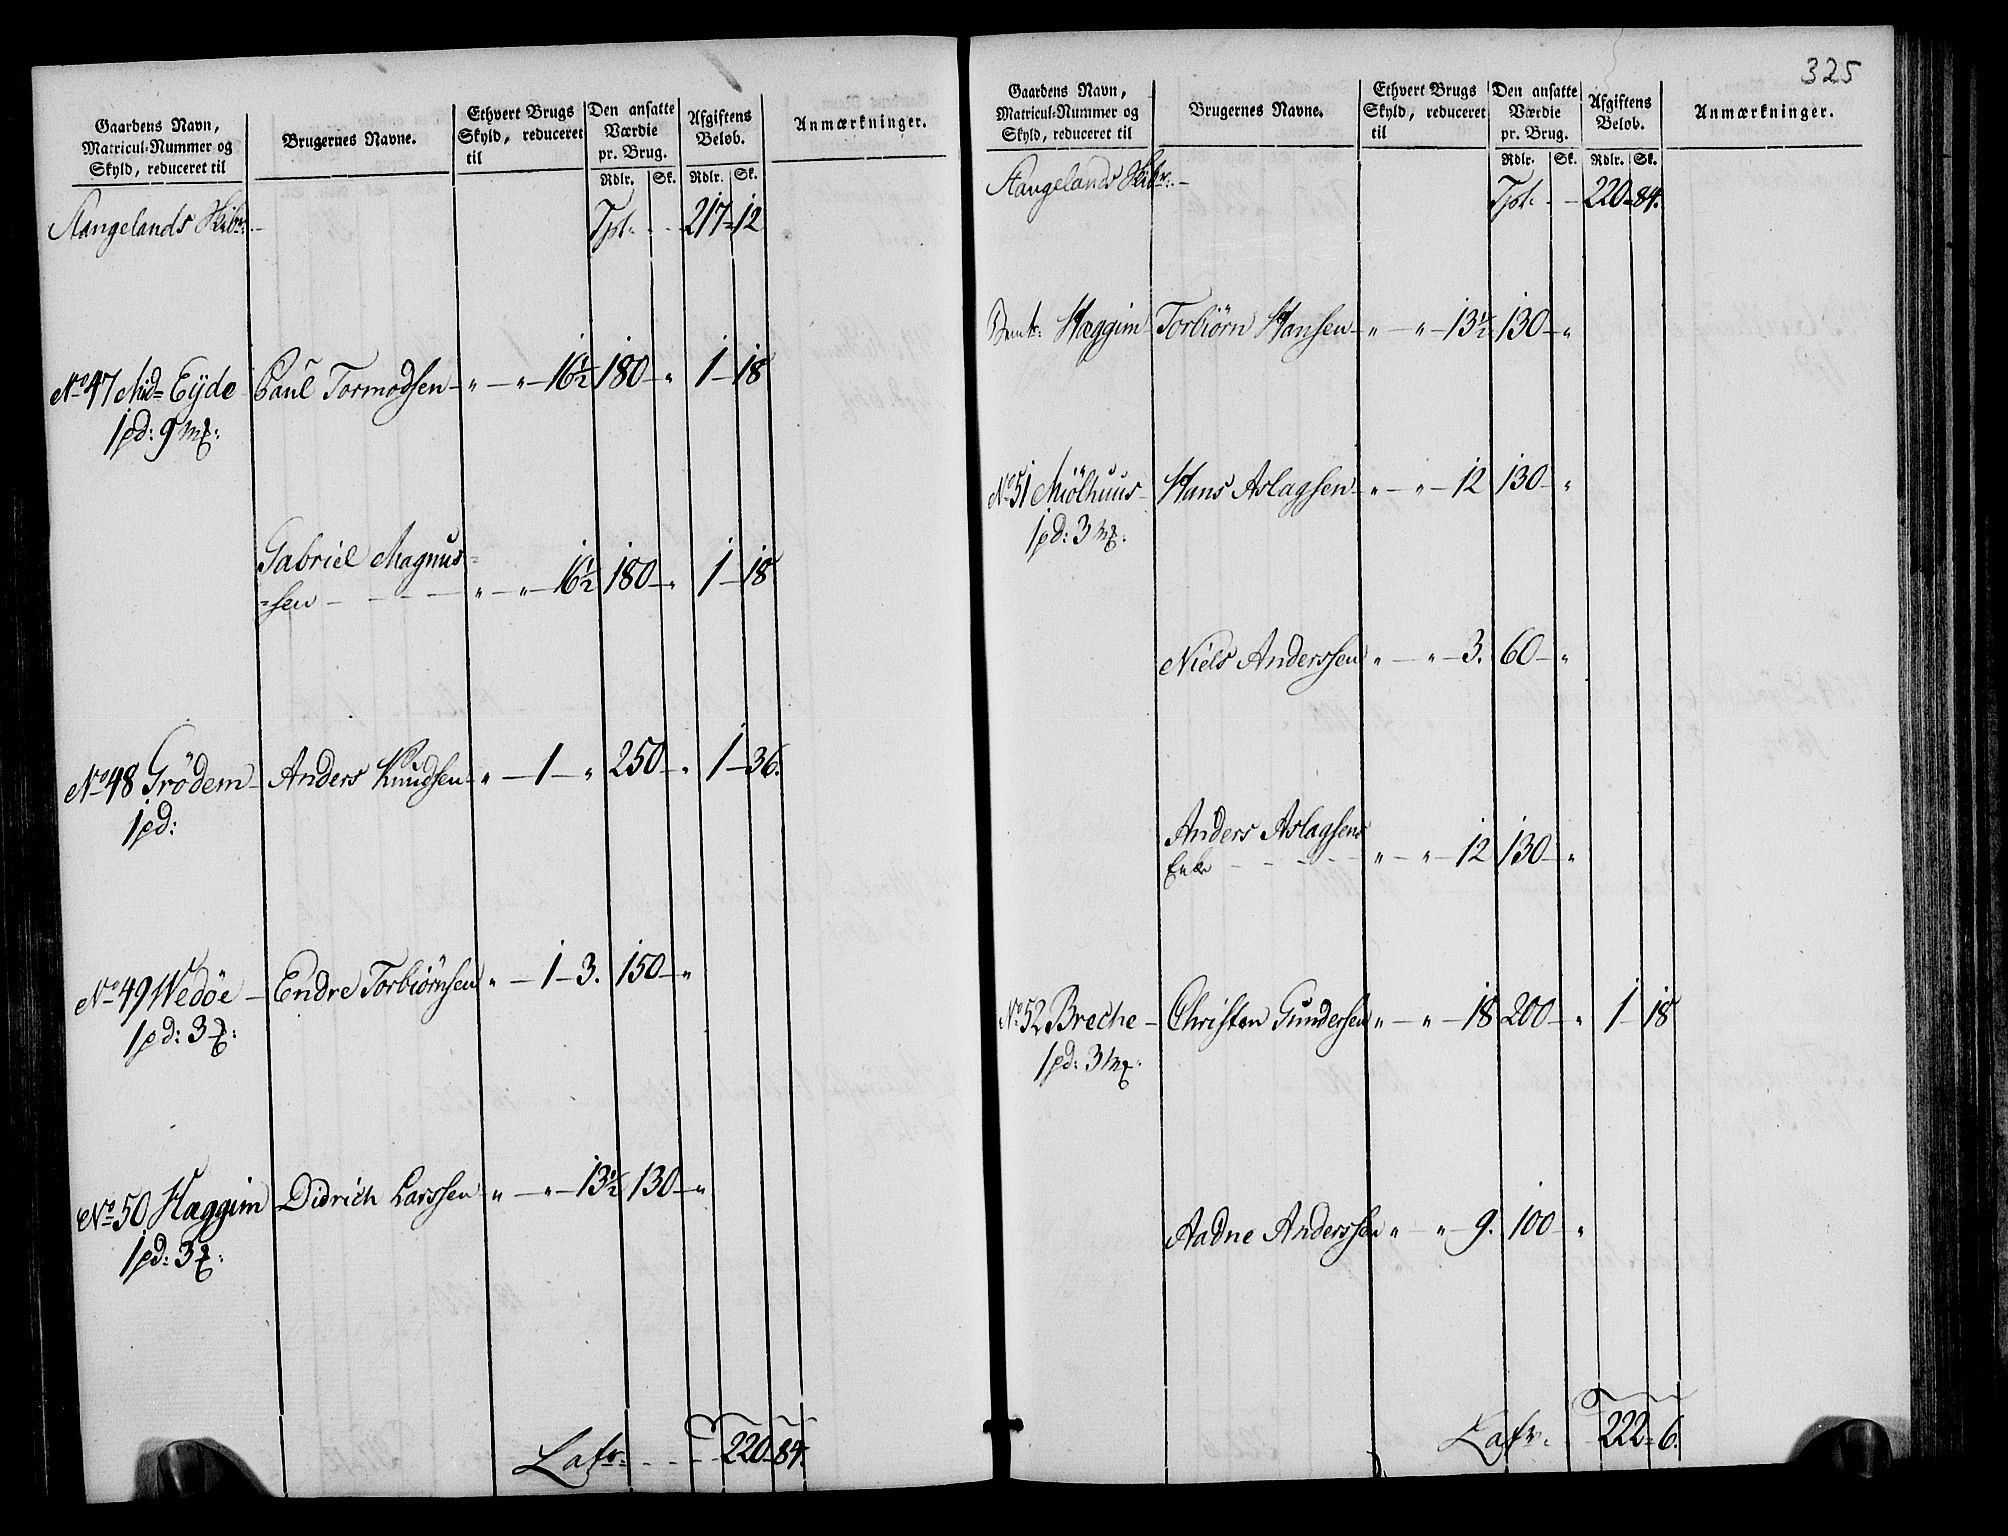 Gaardens Navn, Matricul-Nummer og Skyld, reduceret til
Brugernes Navne.
Ethvert Brugs Skyld, reduceret til
Den ansatte Værdie pr. Brug.
Rdlr. Sk.
Afgiftens Beløb.
Rdlr. Sk.
Anmærkninger.
Stangelands Skibr: Tpt: 217 = 12
No 47 Mid= Eÿde Paul Tormodsen — " — " — 16½ 180 — " 1 — 18
1 pd: 9 mf:
Gabriel Magnus=
=sen — " — " — 16½ 180 — " 1 — 18
No 48 Grödem — Anders Knudsen — " — 1 — " 250 — " 1 — 36.
1 pd:
No 49 Wedöe — Endre Torbiörnsen " — 1 — 3. 150 — "
1 pd: 3
No 50 Hæggim Didrich Larssen " — " — 13½ 130 — "
1 pd: 3
Lafr: 220 = 84.
325
Gaardens Navn, Matricul-Nummer og Skyld, reduceret til
Brugernes Navne.
Ethvert Brugs Skyld, reduceret til
Den ansatte Værdie pr. Brug.
Rdlr. Sk.
Afgiftens Beløb.
Rdlr. Sk.
Anmærkninger.
Stangelands Skibr: Tpt: 220 = 84.
Hæggim Torbiörn Hansen — " — " — 13½ 130 — "
No 51 Miölhuus — Hans Aslagsen — " — " — 12 130 — "
1 pd: 3 mf:
Niels Anderssen " — " — 3. 60 — "
Anders Aslagsens
Enke " — " — 12 130 — "
No 52 Breche — Christen Gundersen " — " — 18 200 — " 1 — 18
1 pd: 3 mf:
Aadne Anderssen " — " — 9. 100 — "
Lafr: 222 = 6.